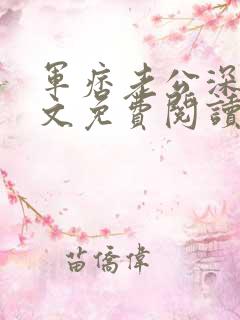 軍痞老公深
文免費閱讀
苗僑偉